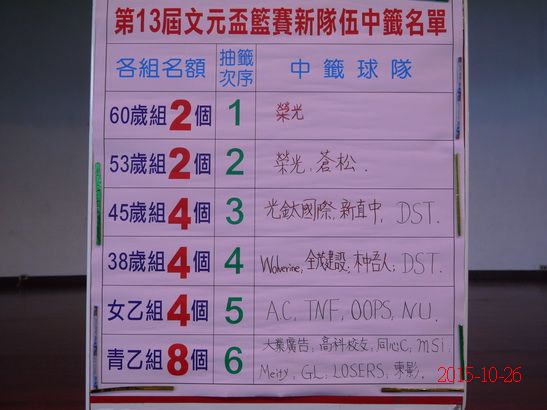 第13屆文元盃籃賽新隊伍中籤名單
各組名額 抽籤次序 中籤球隊
60歲組2個 1 榮光
53歲組2個 2 榮光, 蒼松.
45歲組4個 3 光鈦國際, 新直中, DST.
38歲組4個 4 Wolverine, 全茂建設, 木吾人, DST.
女乙組4個 5 A.C, TNF, OOPS, NU.
青乙組8個 6 大業廣告, 高科校友, 同心C, MSi,
Meity, GL, LOSERS, 東影.
2015-10-26